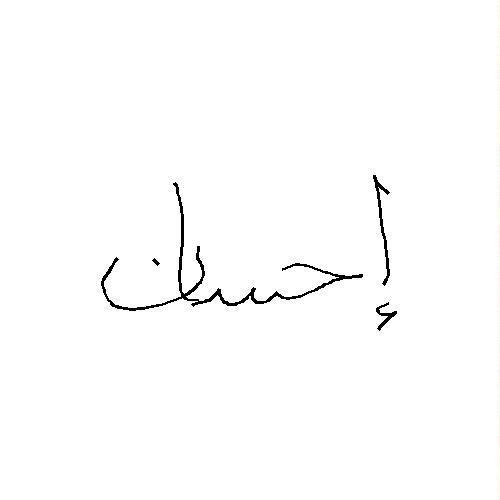 إحسان